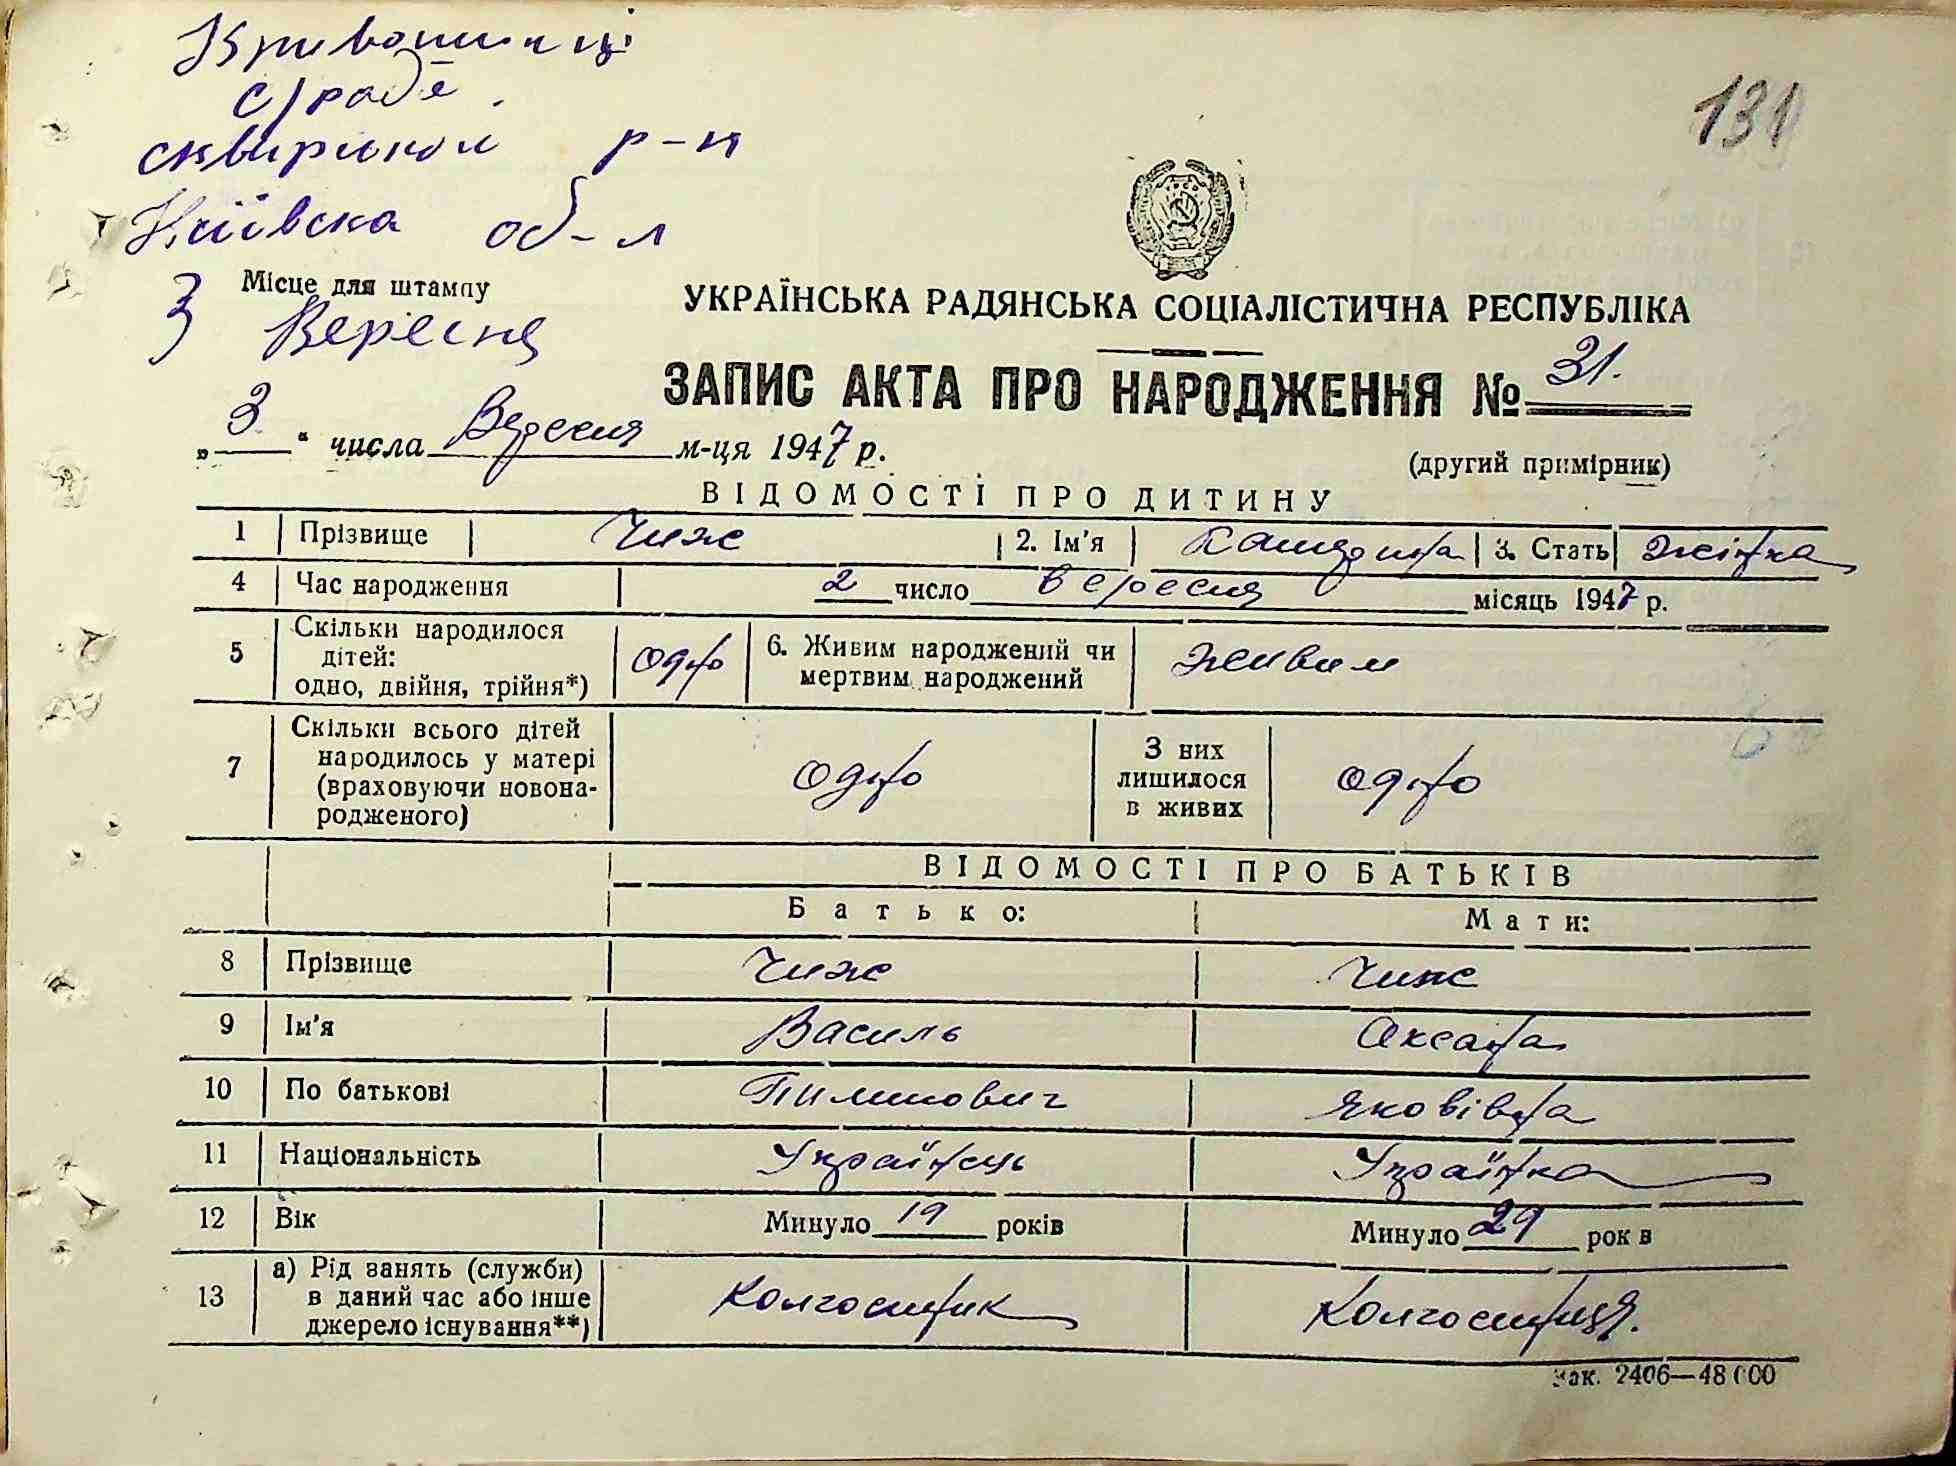 Кривошиїнці
с/раді
сквирьком р-н
Київска об-л
131
Місце для штампу
3 Вересня
УКРАЇНСЬКА РАДЯНСЬКА СОЦІАЛІСТИЧНА РЕСПУБЛІКА
ЗАПИС АКТА ПРО НАРОДЖЕННЯ № 31.
„3“ числа Вересня м-ця 1947 р.
(другий примірник)
ВІДОМОСТІ ПРО ДИТИНУ
1 Прізвище Чиж 2. Ім'я 3. Стать жінка
4 Час народження 2 число вересня місяць 1947 р.
5 Скільки народилося дітей: одно, двійня, трійня*) одно 6. Живим народжений чи мертвим народжений живим
7 Скільки всього дітей народилось у матері (враховуючи новонародженого) одно З них лишилося в живих одно
ВІДОМОСТІ ПРО БАТЬКІВ
Батько: Мати:
8 Прізвище Чиж Чиж
9 Ім'я Василь Оксана
10 По батькові Пилипович Яковівна
11 Національність Українець Українка
12 Вік Минуло 19 років Минуло 29 рок в
13 а) Рід занять (служби) в даний час або інше джерело існування**) Колгоспник Колгоспниця.
Зак. 2406—48000